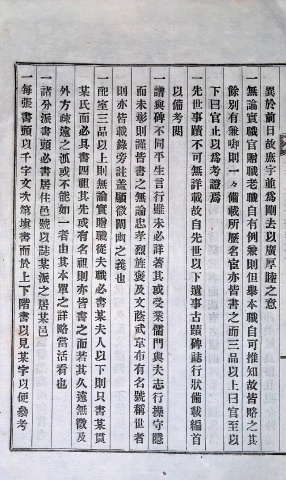 異於前日故庶字並爲刪去以廣厚睦之意
一無論實職官贈職老職自有例兼則但擧本職自可推知故皆略之其
餘別有兼啣則一々備載所歷名宦亦皆書之而三品以上曰官至以
下曰官止以爲考證焉
一先世事蹟不可無詳載故自先世以下遺事古蹟碑誌行狀備載編首
以備考閱
一譜與碑不同平生言行雖未必詳著其或受業儒門與夫志行操守隱
而未彰則謹皆書之無論忠孝烈旌褒及文蔭武京布有名號稱世者
則亦皆載錄旁註盖顯微闡幽之義也
一配室三品以上則無論實贈從夫職必書某夫人以下則只書某貫
某氏而必具書四祖其先或有名祖則亦皆書之而若其久遠無徵及
外方疎遠之派或不能如一者由其本單之詳略當活看也
一諸分派書頭必書居住邑號以誌某派之居某邑
一每張書頭以千字文次第塡書而於上下階書以見某字以便參考